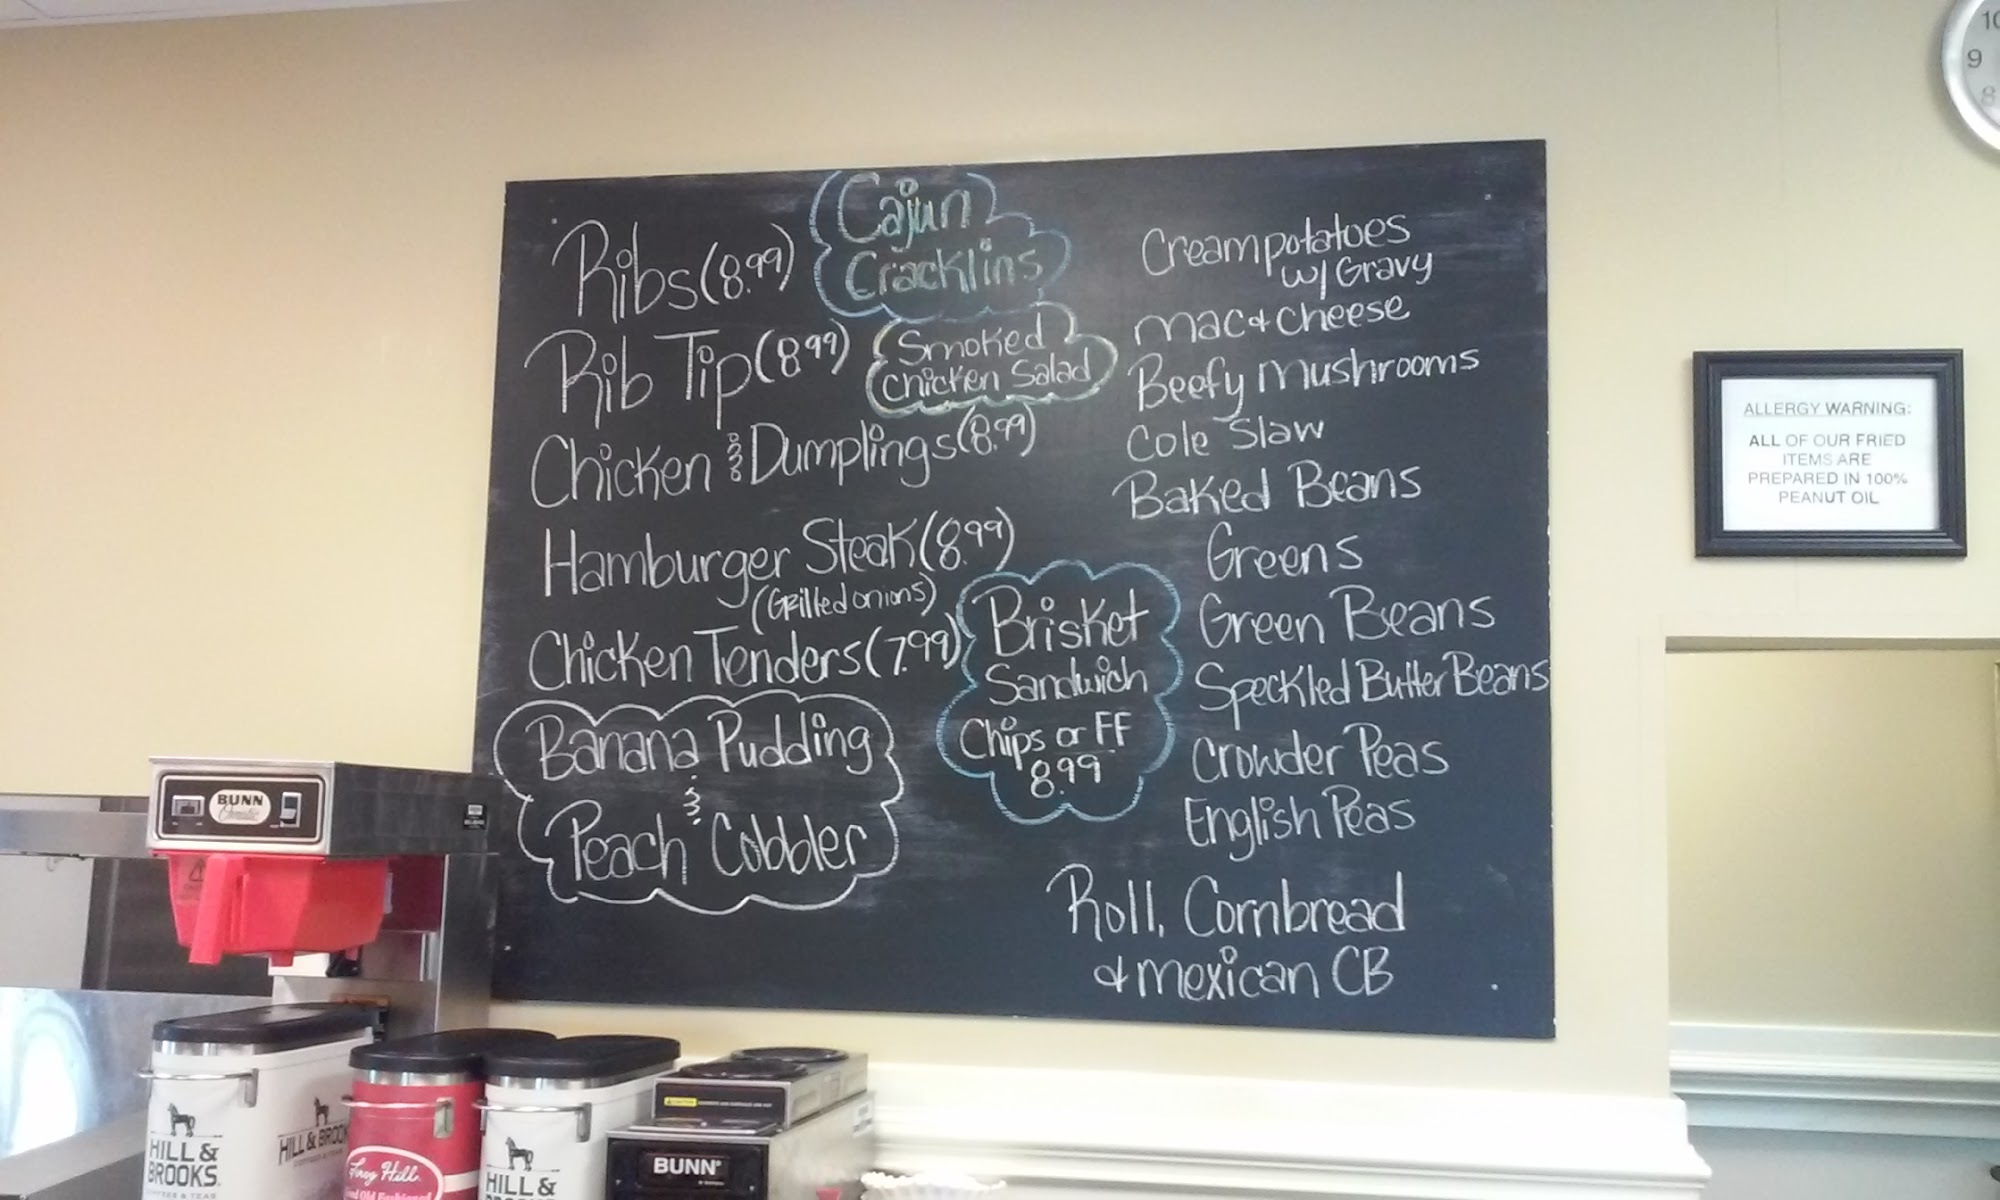 Cajun
Cracklins
Ribs (8.99)
Rib Tip (8.99)
Smoked
Chicken Salad
Chicken & Dumplings (8.99)
Hamburger Steak (8.99)
(Grilled onions)
Chicken Tenders (7.99)
Brisket
Sandwich
Chips or FF
8.99
Banana Pudding
&
Peach Cobbler
Creampotatoes
w/ Gravy
Mac & Cheese
Beefy Mushrooms
Cole Slaw
Baked Beans
Greens
Green Beans
Speckled Butter Beans
Crowder Peas
English Peas
Roll, Cornbread
& Mexican CB
ALLERGY WARNING:
ALL OF OUR FRIED
ITEMS ARE
PREPARED IN 100%
PEANUT OIL
10
9
8
BUNN
HILL &
BROOKS
COFFEE & TEAS
HILL & BROOK
Hill
Old Fashioned
HILL &
BUNN